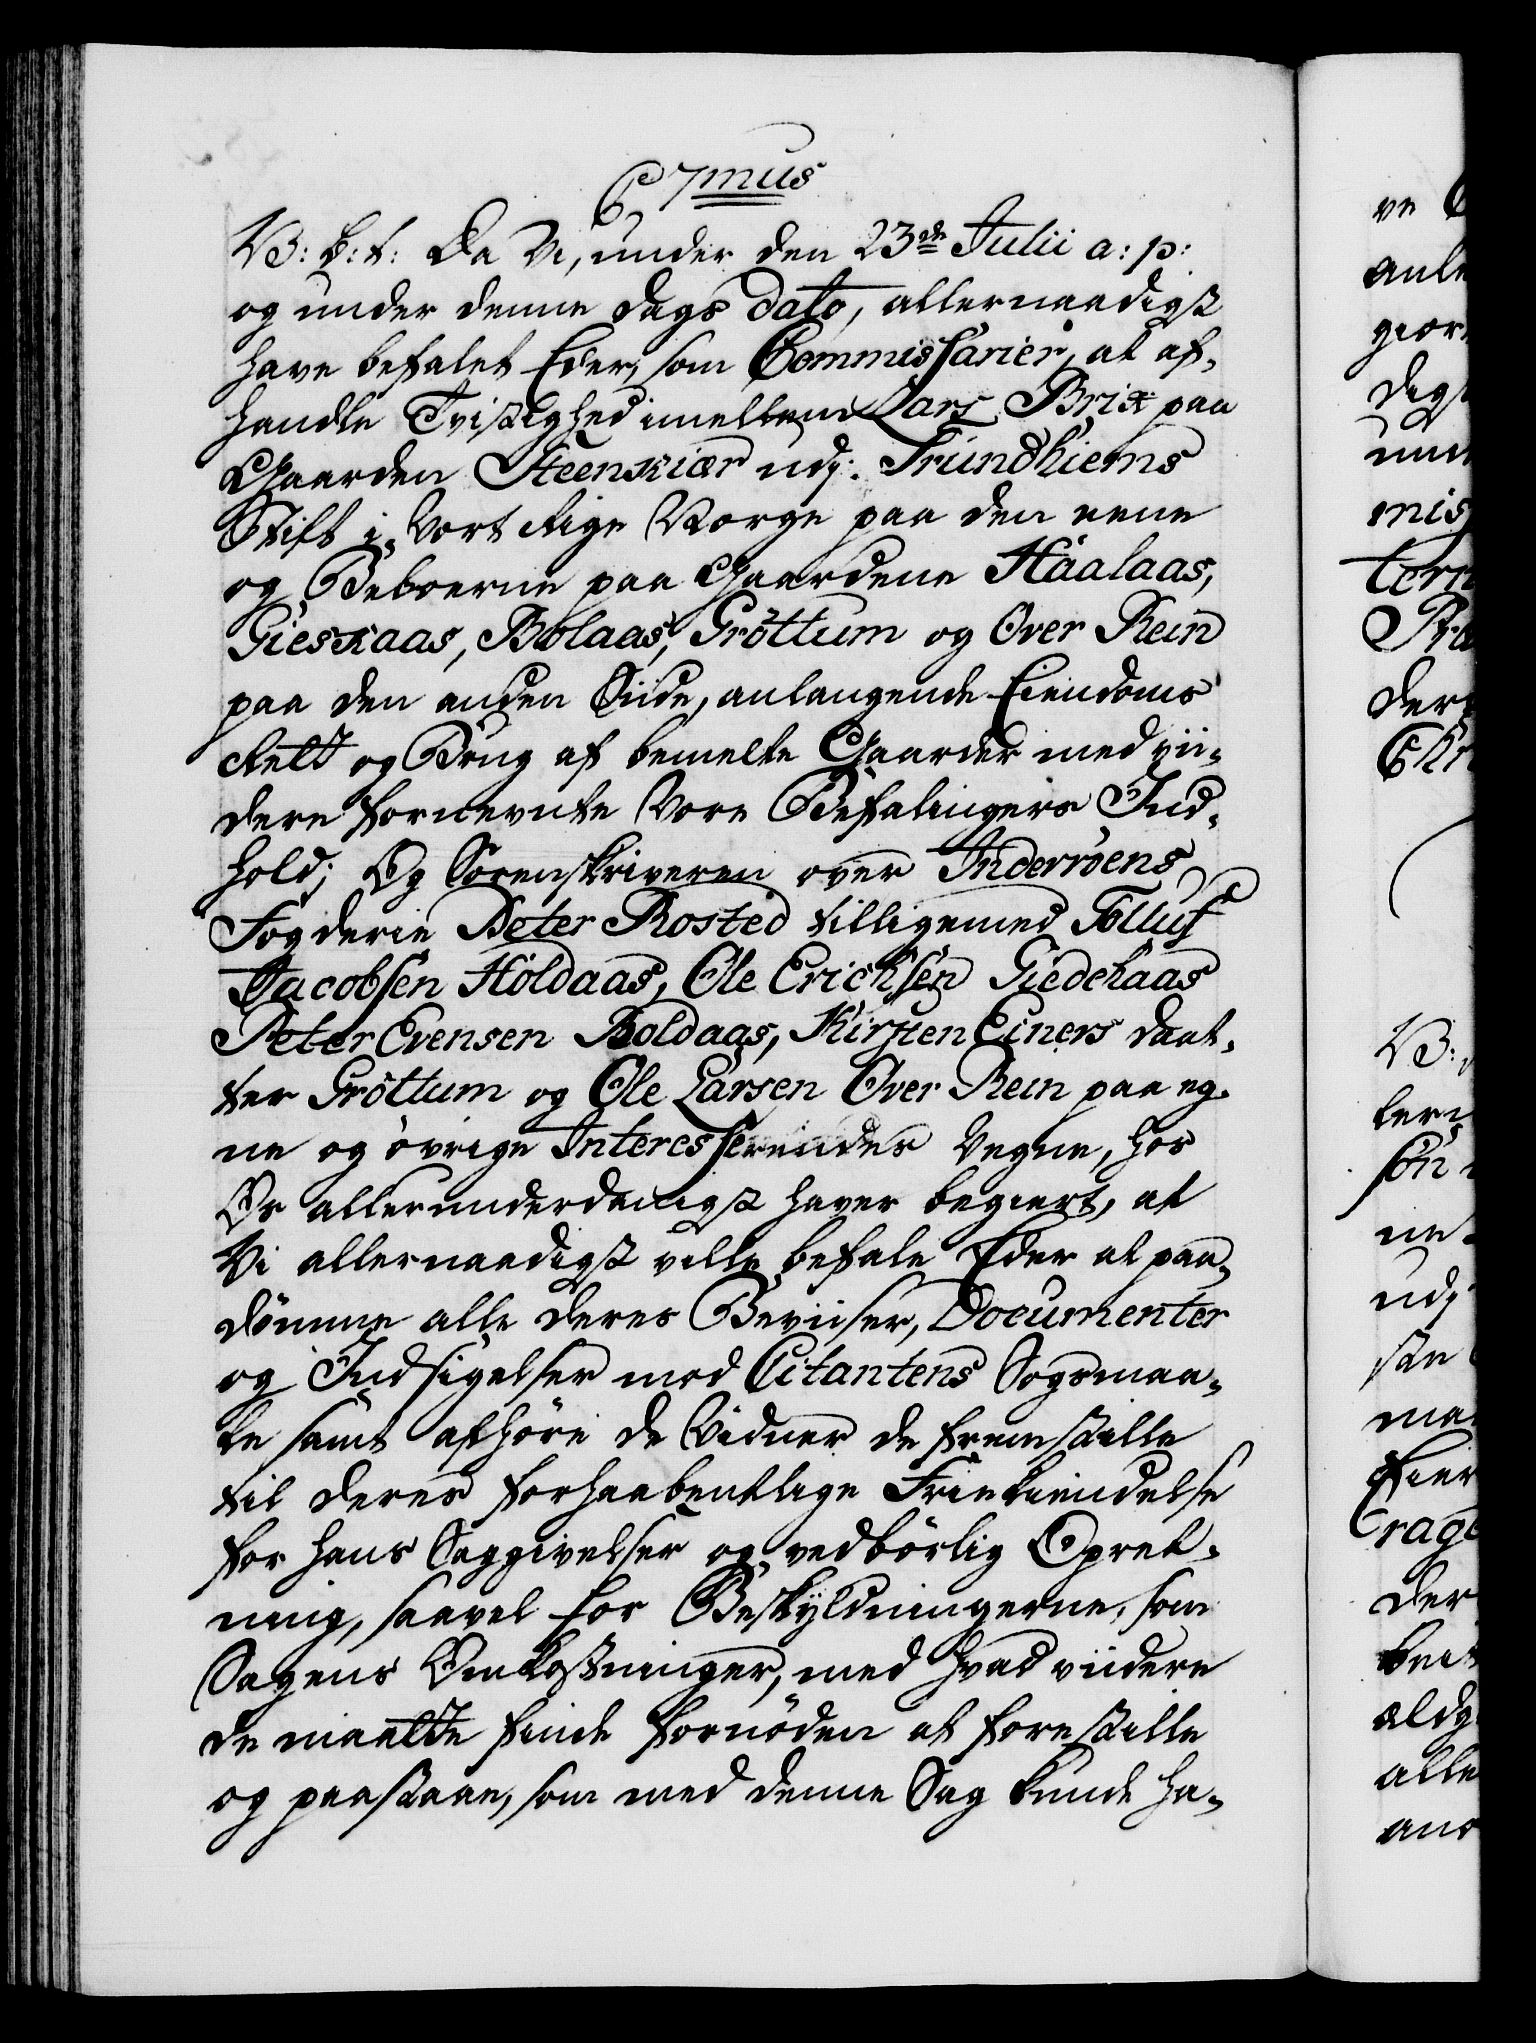 7mus
V: b: t: Da Vi, under den 23de Julii a: p:
og under denne Dags Dato, allernaadigst
have befalet Eder, som Commissarier, at af-
handle Tvistighed imellem Lars Brix paa
Gaarden Steenkiær udj Trundhiems
Stift i Vort Rige Norge paa den eene
og Beboerne paa Gaardene Haalaas,
Gieskaas, Bolaas, Gröttum og Over Rein
paa den anden Siide, anlangende Eiendoms
Rett og Brug af bemelte Gaarder med vii-
dere fornevnte Vore Befalingers Ind-
hold; Og Sorenskriveren over Inderröens
Fogderie Peter Rosted tilligemed Tolluf
Jacobsen Höldaas, Ole Erichsen Giedchaas
Peter Evensen Boldaas, Kirsten Einers Daat-
ter Gröttum og Ole Larsen Over Rein paa eg-
ne og övrige Interesserendes Vegne, hos
Os allerunderdanigst haver begiert, at
Vi allernaadigst ville befale Eder at paa-
dömme alle deres Beviiser, Documenter
og Indsigelser mod Citantens Sogsmaa-
le samt afhöre de Vidner de fremstille
til deres forhaabentlige Friekiendelse
for hans Saggivelser og vedbörlig Opret-
ning, saavel for Beskyldningerne, som
Sagens Omkostninger, med hvad viidere
de maatte finde fornöden at forestille
og paastaae, som med denne Sag kunde ha-